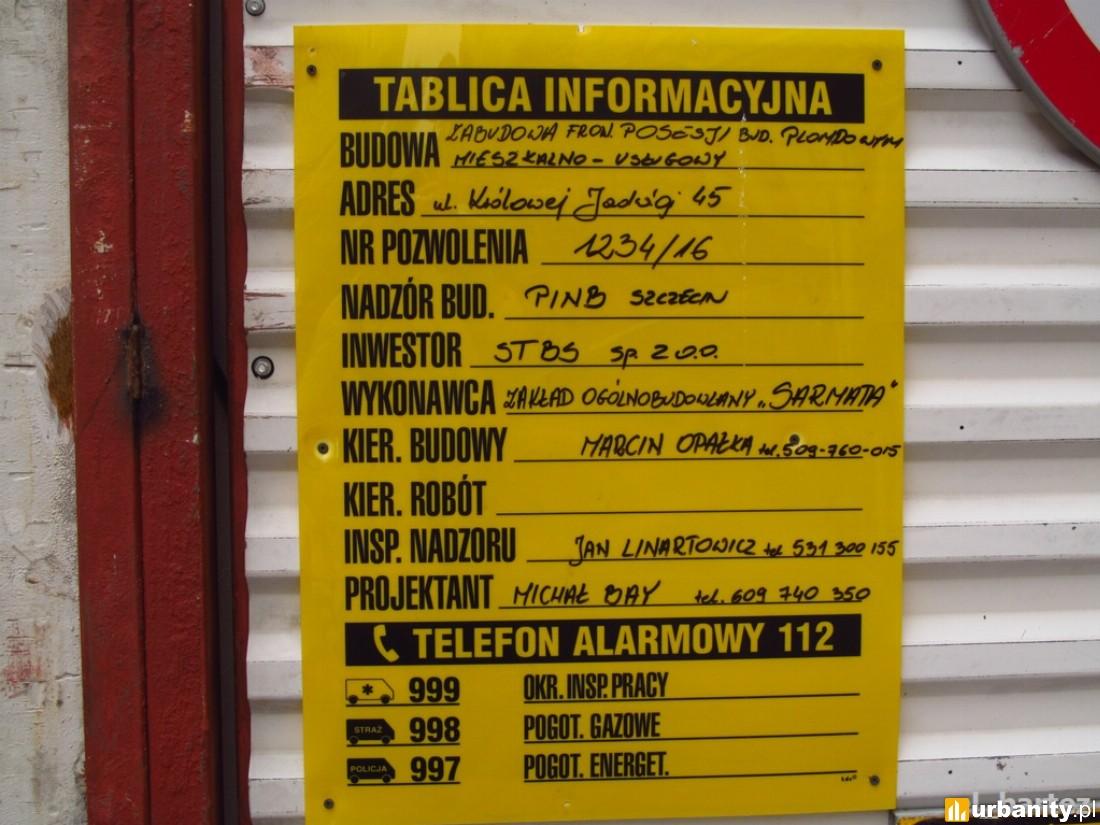 TABLICA INFORMACYJNA
BUDOWA ZABUDOWA FRON. POSESJI BUD. PLOMBOWYM
MIESZKALNO - USŁUGOWY
ADRES ul. Królowej Jadwigi 45
NR POZWOLENIA 1234/16
NADZÓR BUD. PINB SZCZECIN
INWESTOR STBS sp. z o.o.
WYKONAWCA ZAKŁAD OGÓLNOBUDOWLANY „SARMATA"
KIER. BUDOWY MARCIN OPAŁKA tel. 509-760-015
KIER. ROBÓT
INSP. NADZORU JAN LINARTOWICZ tel 531 300 155
PROJEKTANT MICHAŁ BAY tel. 609 740 350
TELEFON ALARMOWY 112
999 OKR. INSP. PRACY
STRAŻ 998 POGOT. GAZOWE
POLICJA 997 POGOT. ENERGET.
urbanity.pl